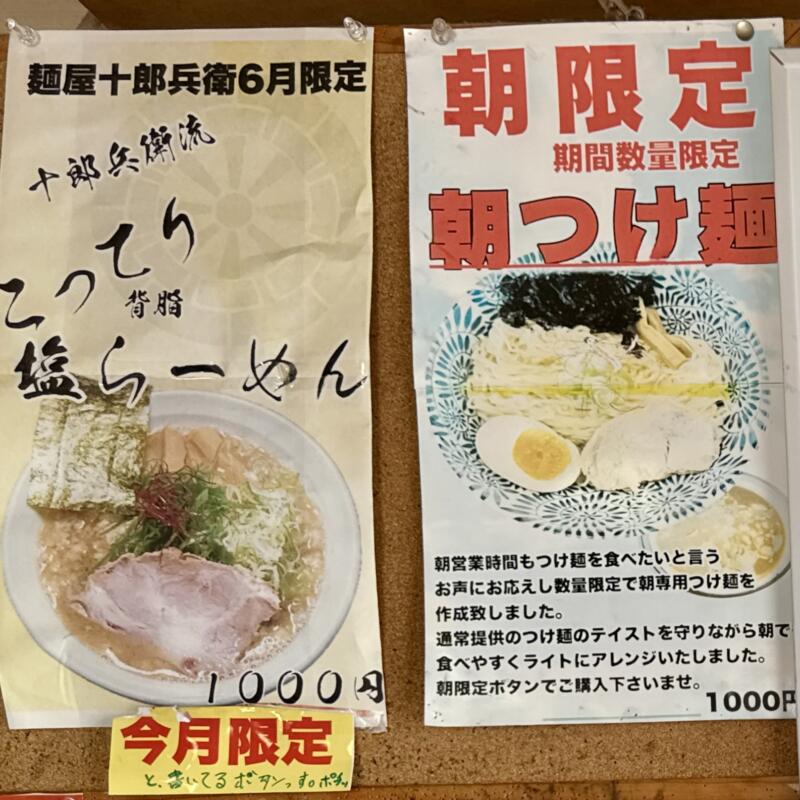 麺屋十郎兵衛6月限定
十郎兵衛流
こってり
背脂
塩らーめん
1000円
今月限定
と、書いてるボタンっす。ポチッ
朝限定
期間数量限定
朝つけ麺
朝営業時間もつけ麺を食べたいと言う
お声にお応えし数量限定で朝専用つけ麺を
作成致しました。
通常提供のつけ麺のテイストを守りながら朝で
食べやすくライトにアレンジいたしました。
朝限定ボタンでご購入下さいませ。
1000円